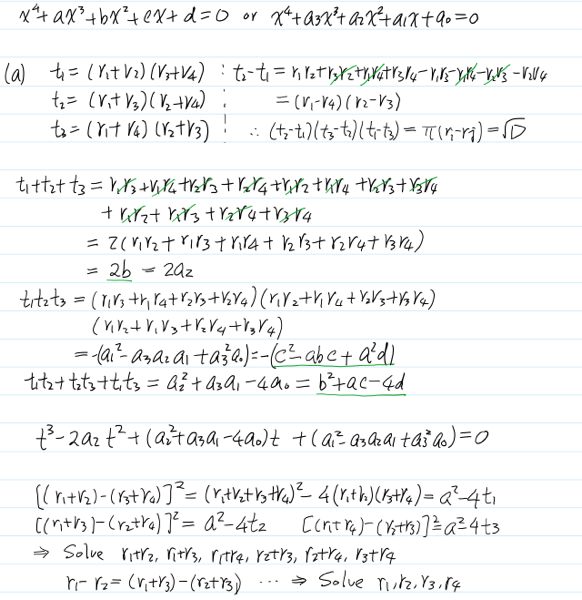 x⁴+ax³+bx²+cx+d=0 or x⁴+a₃x³+a₂x²+a₁x+a₀=0
(a) t₁=(r₁+r₂)(r₃+r₄) : t₂-t₁=r₁r₂+r₃r₂+r₁r₄+r₃r₄-r₁r₃-r₁r₄-r₂r₃-r₂r₄
t₂=(r₁+r₃)(r₂+r₄) =(r₁-r₄)(r₂-r₃)
t₃=(r₁+r₄)(r₂+r₃) ∴(t₂-t₁)(t₃-t₂)(t₁-t₃)=π(rᵢ-rⱼ)=√D
t₁+t₂+t₃=r₁r₃+r₁r₄+r₂r₃+r₂r₄+r₁r₂+r₁r₄+r₂r₃+r₃r₄
+r₁r₂+r₁r₃+r₂r₄+r₃r₄
=2(r₁r₂+r₁r₃+r₁r₄+r₂r₃+r₂r₄+r₃r₄)
=2b=2a₂
t₁t₂t₃=(r₁r₃+r₁r₄+r₂r₃+r₂r₄)(r₁r₂+r₁r₄+r₂r₃+r₃r₄)
(r₁r₂+r₁r₃+r₂r₄+r₃r₄)
=-(a₁²-a₃a₂a₁+a₃²a₀)=-(c²-abc+a²d)
t₁t₂+t₂t₃+t₁t₃=a₂²+a₃a₁-4a₀=b²+ac-4d
t³-2a₂t²+(a₂²+a₃a₁-4a₀)t+(a₁²-a₃a₂a₁+a₃²a₀)=0
[(r₁+r₂)-(r₃+r₄)]²=(r₁+r₂+r₃+r₄)²-4(r₁+r₂)(r₃+r₄)=a²-4t₁
[(r₁+r₃)-(r₂+r₄)]²=a²-4t₂ [(r₁+r₄)-(r₂+r₃)]²=a²-4t₃
⇒ Solve r₁+r₂, r₁+r₃, r₁+r₄, r₂+r₃, r₂+r₄, r₃+r₄
r₁-r₂=(r₁+r₃)-(r₂+r₃) ... ⇒ Solve r₁,r₂,r₃,r₄